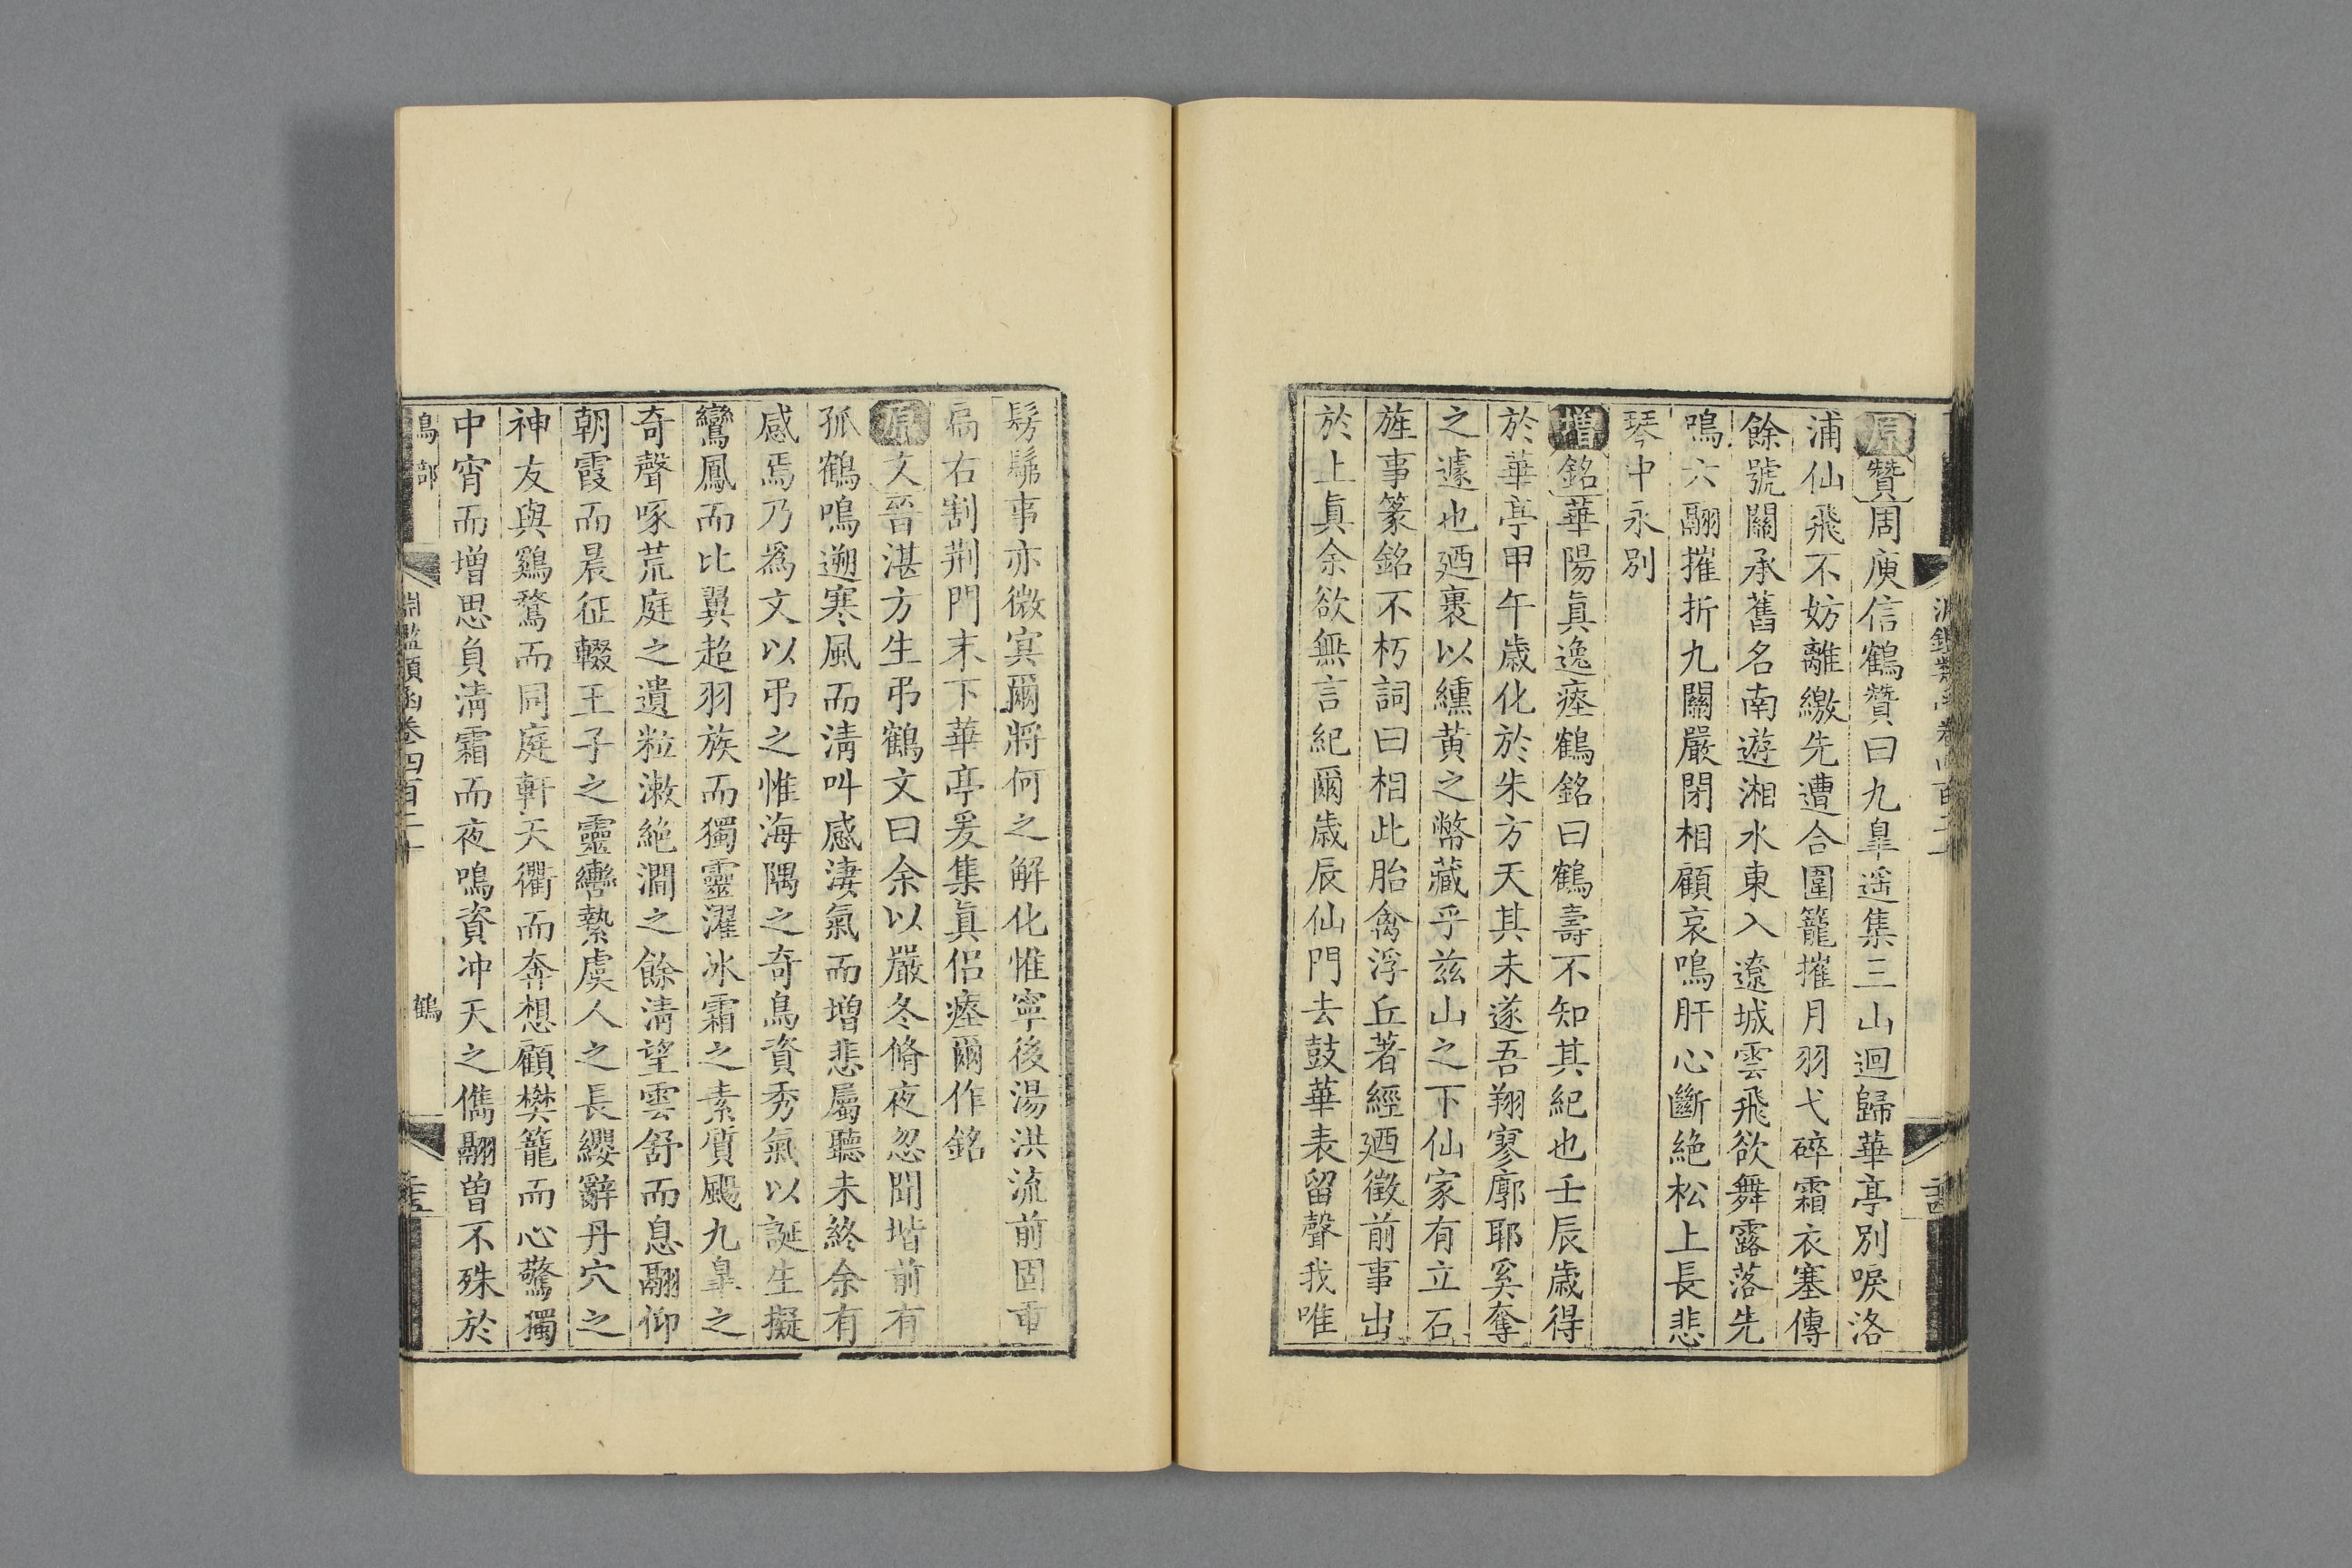 原贊周庾信鶴贊曰九臯遥集三山迴歸華亭別唳洛
浦仙飛不妨離繳先遭合圍籠摧月羽弋碎霜衣塞傳
餘號關承舊名南遊湘水東入遼城雲飛欲舞露落先
鳴六翮摧折九關嚴閉相顧哀鳴肝心斷絶松上長悲
琴中永別
增銘華陽眞逸瘞鶴銘曰鶴壽不知其紀也壬辰歲得
於華亭甲午歲化於朱方天其未遂吾翔寥廓耶奚奪
之遽也廼裹以纁黄之幣藏乎兹山之下仙家有立石
旌事篆銘不朽詞曰相此胎禽浮丘著經廼徵前事出
於上眞余欲無言紀爾歲辰仙門去鼓華表留聲我唯
髣髴事亦微冥爾將何之解化惟寧後湯洪流前固重
扃右割荆門末下華亭爰集眞侶瘞爾作銘
原文晉湛方生弔鶴文曰余以嚴冬脩夜忽聞堦前有
孤鶴鳴遡寒風而淸叫感淒氣而增悲屬聽未終余有
感焉乃爲文以弔之惟海隅之奇鳥資秀氣以誕生擬
鸞鳳而比翼超羽族而獨靈濯冰霜之素質颺九臯之
奇聲啄荒庭之遺粒漱絶澗之餘淸望雲舒而息翮仰
朝霞而晨征輟王子之靈轡縶虞人之長纓辭丹穴之
神友與鷄鶩而同庭軒天衢而奔想顧樊籠而心驚獨
中宵而增思負淸霜而夜鳴資冲天之儁翮曾不殊於
鳥部 淵鑑類函卷四百二十 鶴